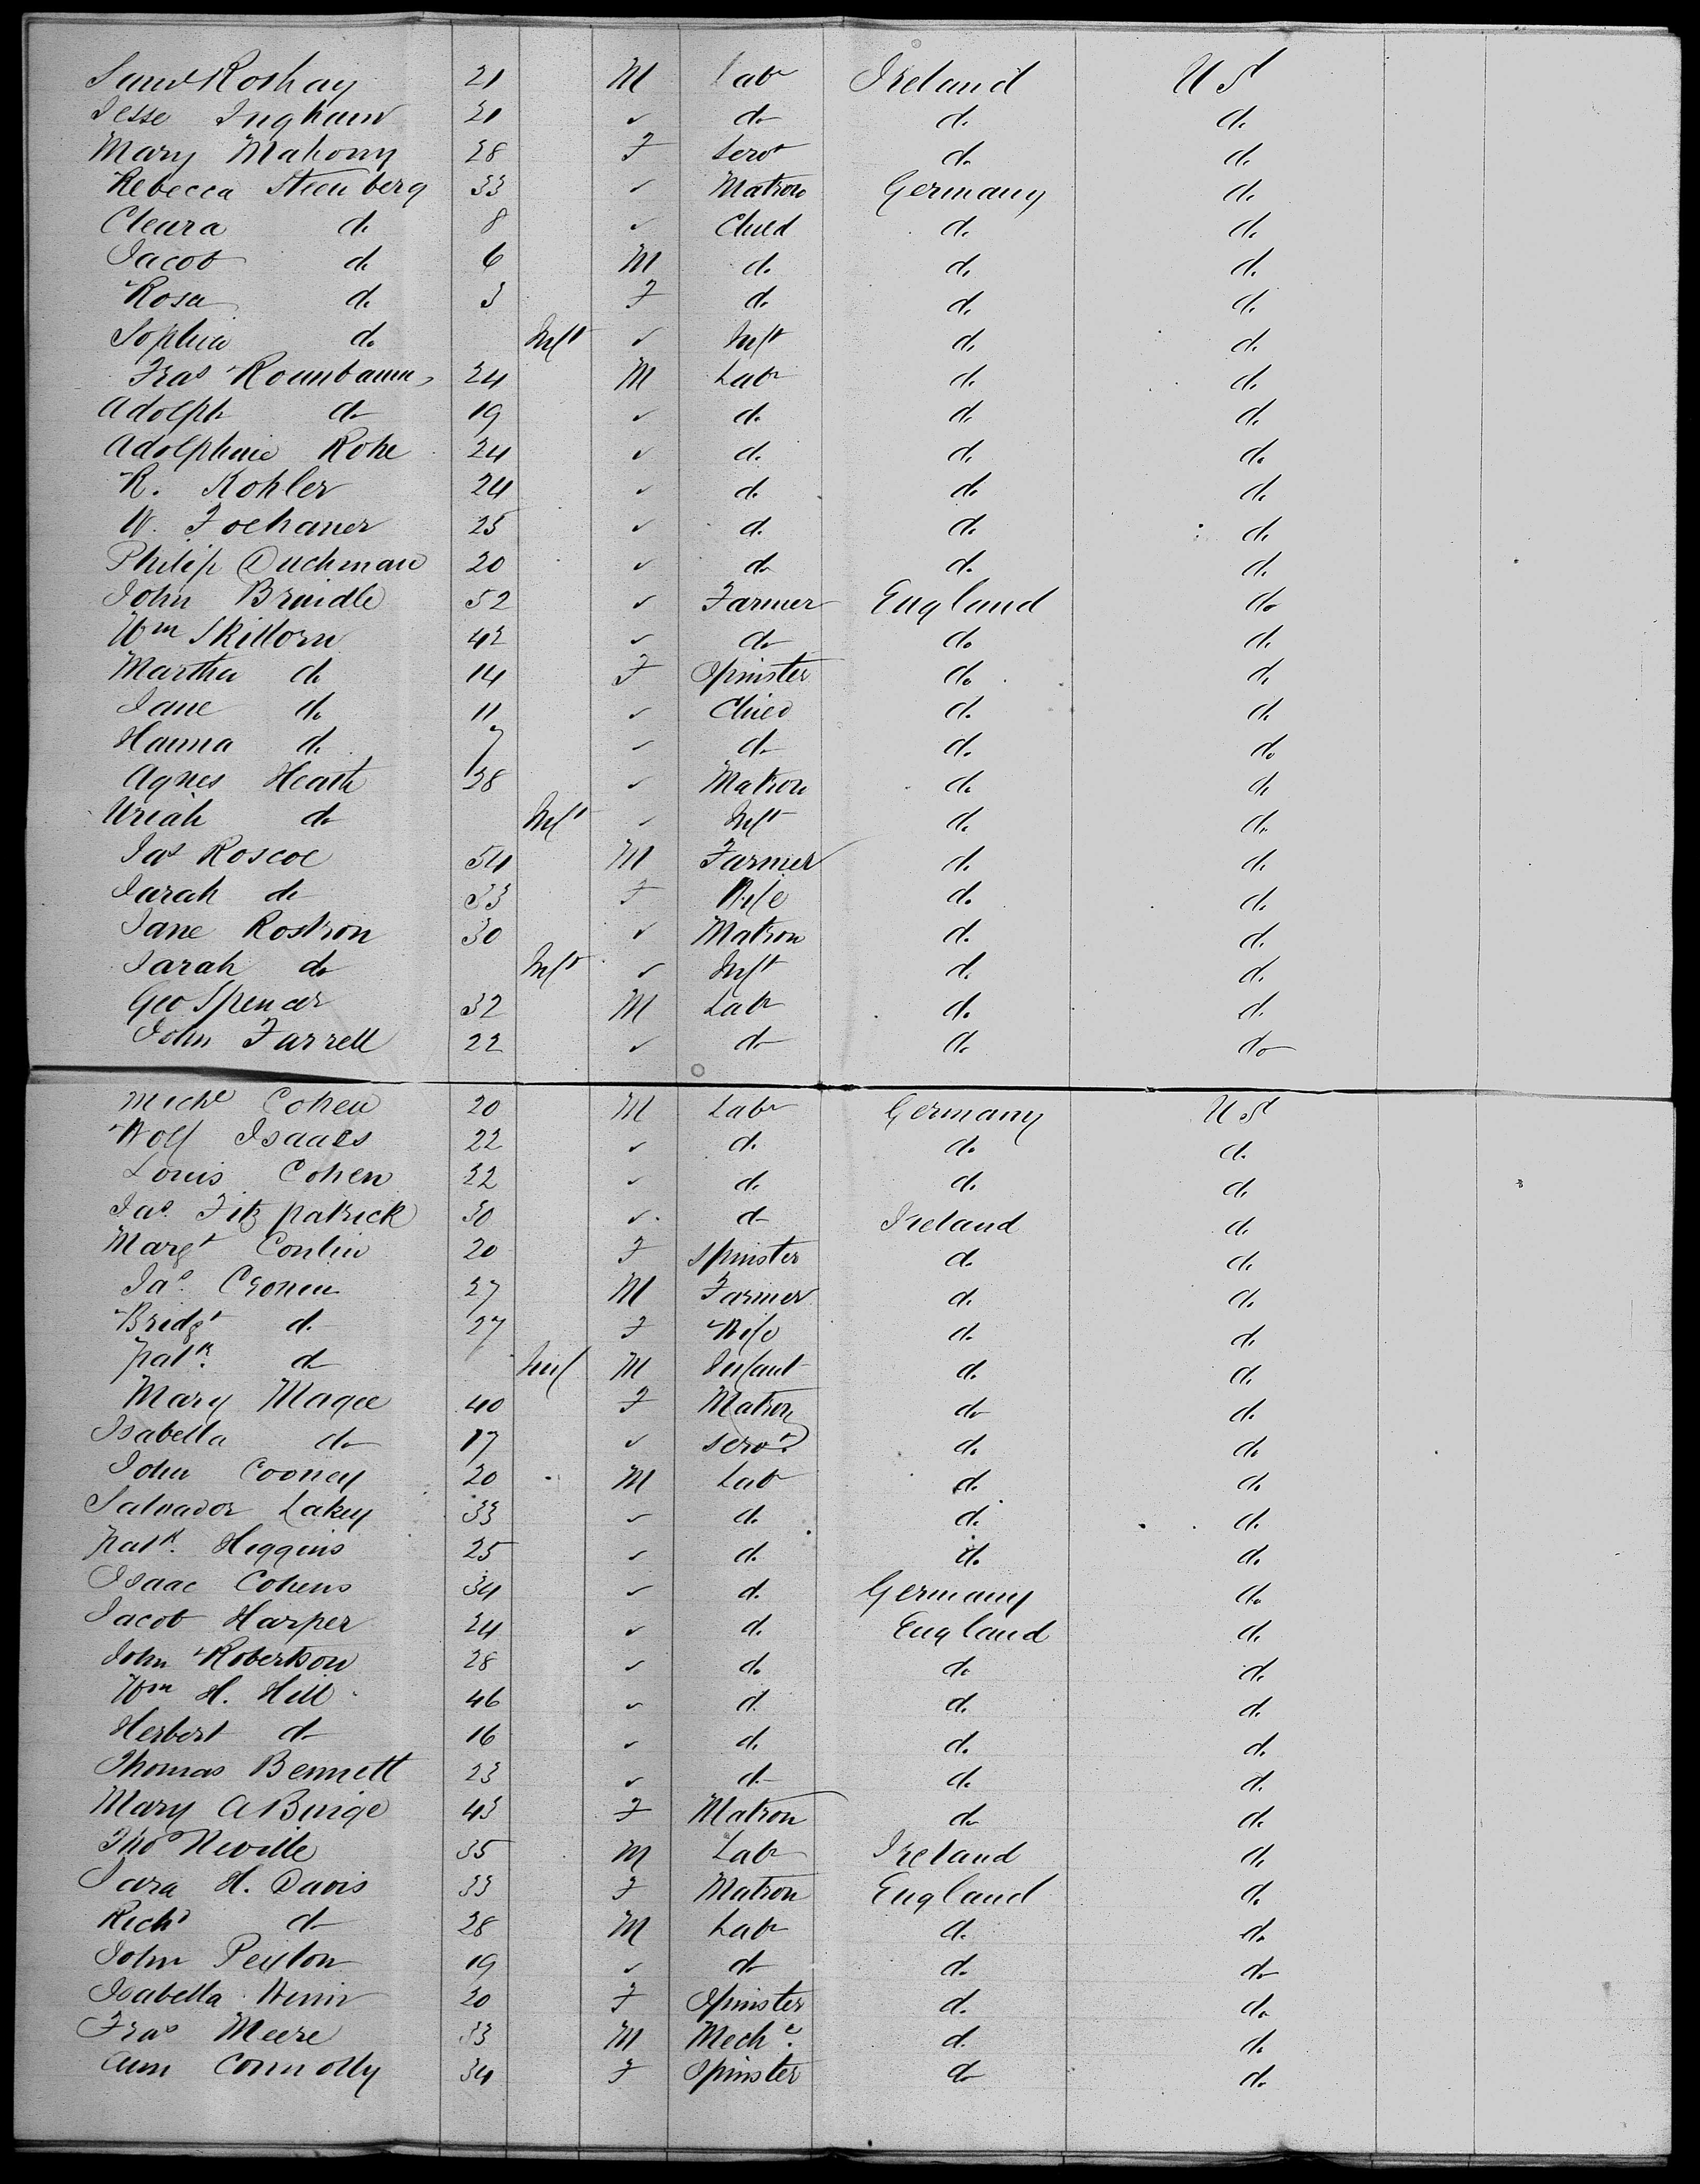 Saml Roshay 21 M Labr Ireland U St
Jesse Ingham 21 " do do do
Mary Mahony 28 F Servt do do
Rebecca Steenberg 33 " Matron Germany do
Cleara do 8 " Child do do
Jacob do 6 M do do do
Rosa do 3 F do do do
Sophia do Inft " Inft do do
Fras Rounbaum 24 M Labr do do
Adolph do 19 " do do do
Adolphine Rohe 24 " do do do
R. Kohler 24 " do do do
W. 25 " do do do
Philip Duchman 20 " do do do
John Brindle 52 " Farmer England do
Wm Skillorn 42 " do do do
Martha do 14 F Spinster do do
Jane do 11 " Child do do
Hanna do 7 " do do do
Agnes Heath 28 " Matron do do
Uriah do Inft " Inft do do
Jas Roscoe 54 M Farmer do do
Sarah do 33 F Wife do do
Jane Rostron 30 " Matron do do
Sarah do Inft " Inft do do
Geo Spencer 32 M Labr do do
John Farrell 22 " do do do
Michl Cohen 20 M Labr Germany U St
Wolf Isaacs 22 " do do do
Louis Cohen 22 " do do do
Jas. Fitzpatrick 30 " do Ireland do
Margt Conlin 20 F Spinster do do
Jas. Cronin 27 M Farmer do do
Bridgt do 27 F Wife do do
Patk. do Inf M Infant do do
Mary Magee 40 F Matron do do
Isabella do 17 " Servt. do do
John Cooney 20 M Labr do do
Salvador Lakey 33 " do do do
Patk. Higgins 25 " do do do
Isaac Cohens 34 " do Germany do
Jacob Harper 24 " do England do
John Robertson 28 " do do do
Wm H. Hill 46 " do do do
Herbert do 16 " do do do
Thomas Bennett 23 " do do do
Mary A Binge 43 F Matron do do
Thos Neville 35 M Labr Ireland do
Sara H. Davis 33 F Matron England do
Richd do 28 M Labr do do
John Peylon 19 " do do do
Isabella 20 F Spinster do do
Fras Meere 33 M Mechc. do do
Ann Connolly 34 F Spinster do do